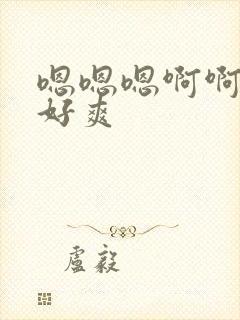 嗯嗯嗯啊啊
好爽
盧毅